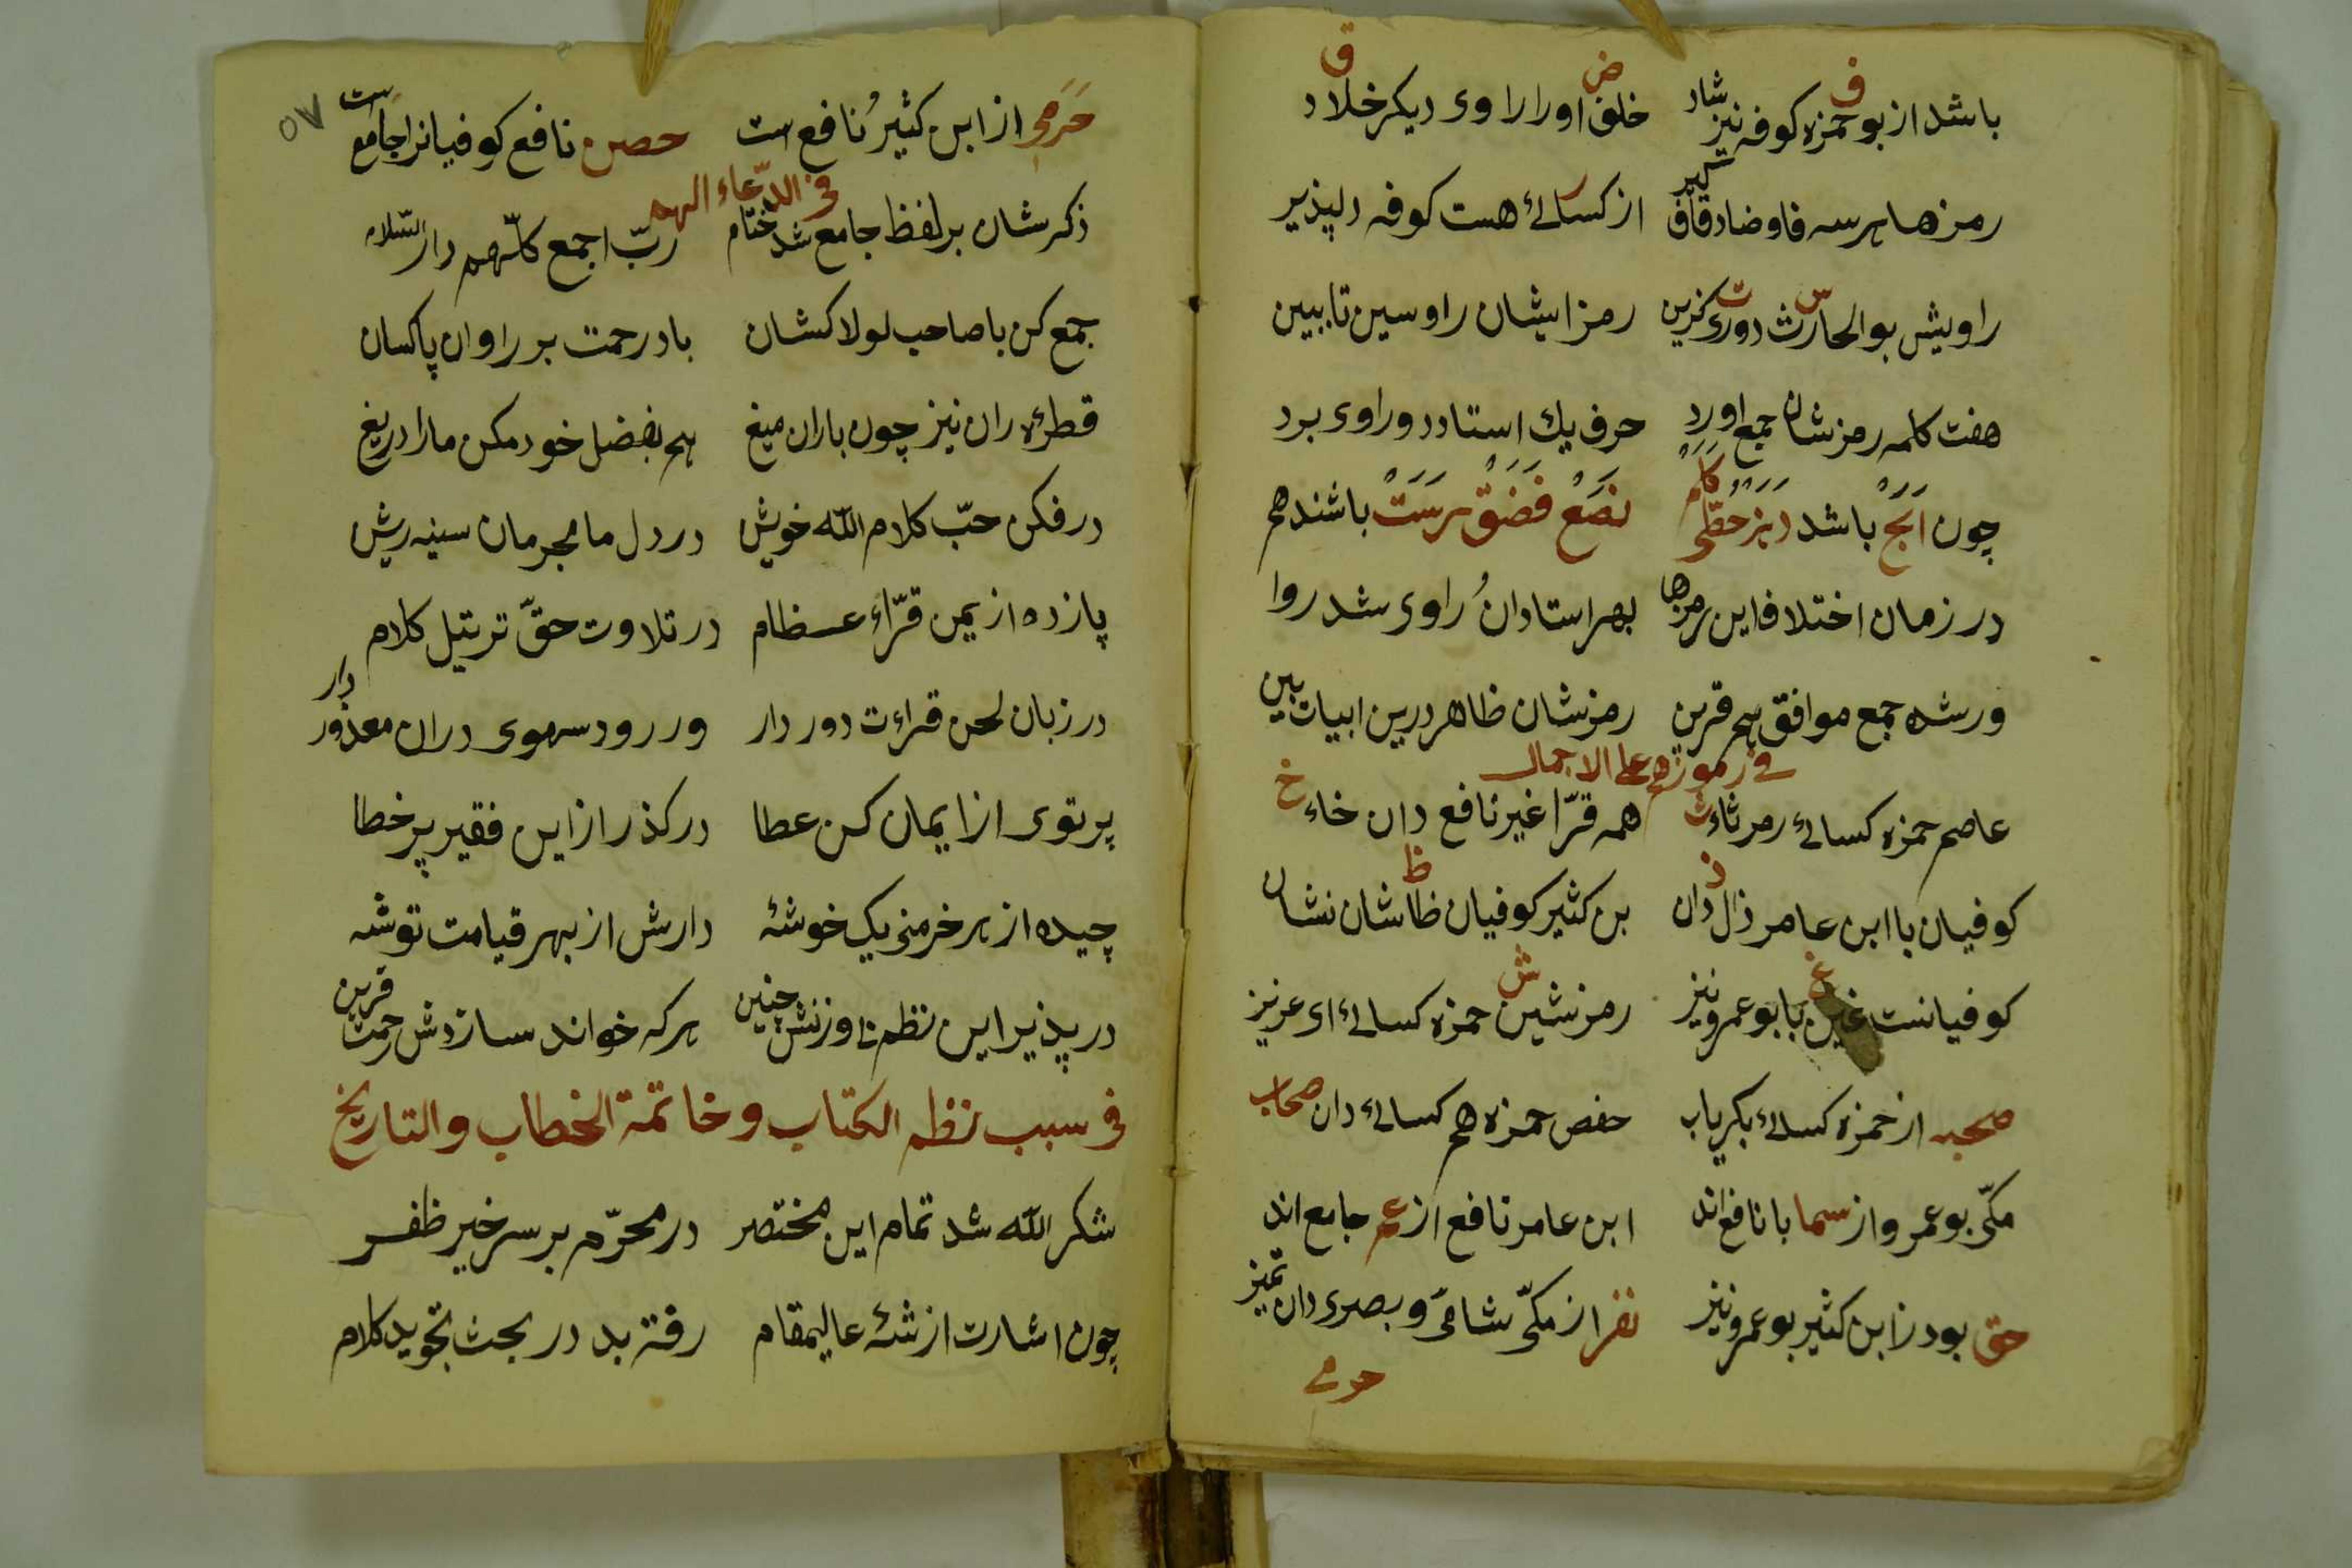 باشد از بو حمزه کوفه نیز شاد خلف او را راوی دیکر خلاد
ف ض ق
رمزها هر سه فا و ضاد قاف شهیر از کسائی هست کوفه دلپذیر
راویش بو الحارث دوری کزین رمز ایشان را و سین تا ببین
س ت ر
هفت کلمه رمزشان جمع اورد حرف یك استاد دو راوی برد
چون اَبَجْ باشد دَهَزْ حُطّی کَلَم نَصَعْ فَضَقْ رَسَتْ باشند هم
در زمان اختلاف این رمزها بهر استادانُ راوی شد روا
ور شده جمع موافق هم قرین رمزشان ظاهر درین ابیات بین
فی رموزهم علی الاجمال
عاصم حمزه کسائی رمز ثاء ث همه قرّا غیر نافع دان خاء خ
کوفیان با ابن عامر ذال دان بن کثیر کوفیان ظا شان نشان
ذ ظ
کوفیانست غین با بو عمرو نیز رمز شین حمزه کسائی ای عزیز
غ ش
صحبه از حمزه کسائی بکر یاب حفص حمزه هم کسائی دان صحاب
مکّی بو عمرو از سما با نافع اند ابن عامر نافع از عم جامع اند
حق بود ز ابن کثیر بو عمرو نیز نفر از مکّی شامی و بصری دان تمیز
حرمی
٥٧
حَرَمی از ابن کثیرُ نافع است حصن نافع کوفیانرا جامع است
فی الدّعاء الهم
ذکرشان بر لفظ جامع شد ختام ربّ اجمع کلّهم دار السّلام
جمع کن با صاحب لولاکشان باد رحمت بر راوان پاکسان
قطرۀ ران نیز چون باران میغ هم بفضل خود مکن مارا دریغ
در فکن حبّ کلام اللّه خویش در دل ما مجرمان سینه ریش
پازده از یمن قرّاء عظام در تلاوت حقّ ترتیل کلام
در زبان لحن قراءت دور دار ور رود سهوی دران معذور دار
پرتوی از ایمان کن عطا در کذر از این فقیر پر خطا
چیده از هر خرمنی یک خوشۀ دارش از بهر قیامت توشه
در پذیر این نظم نی وزنش چنین هر که خواند سازدش رحمت قرین
فی سبب نظم الکتاب و خاتمة الخطاب و التاریخ
شکر اللّه شد تمام این مختصر در محرّم بر سر خیر ظفر
چون اشارت از شۀ عالیمقام رفته بد در بحث تجوید کلام